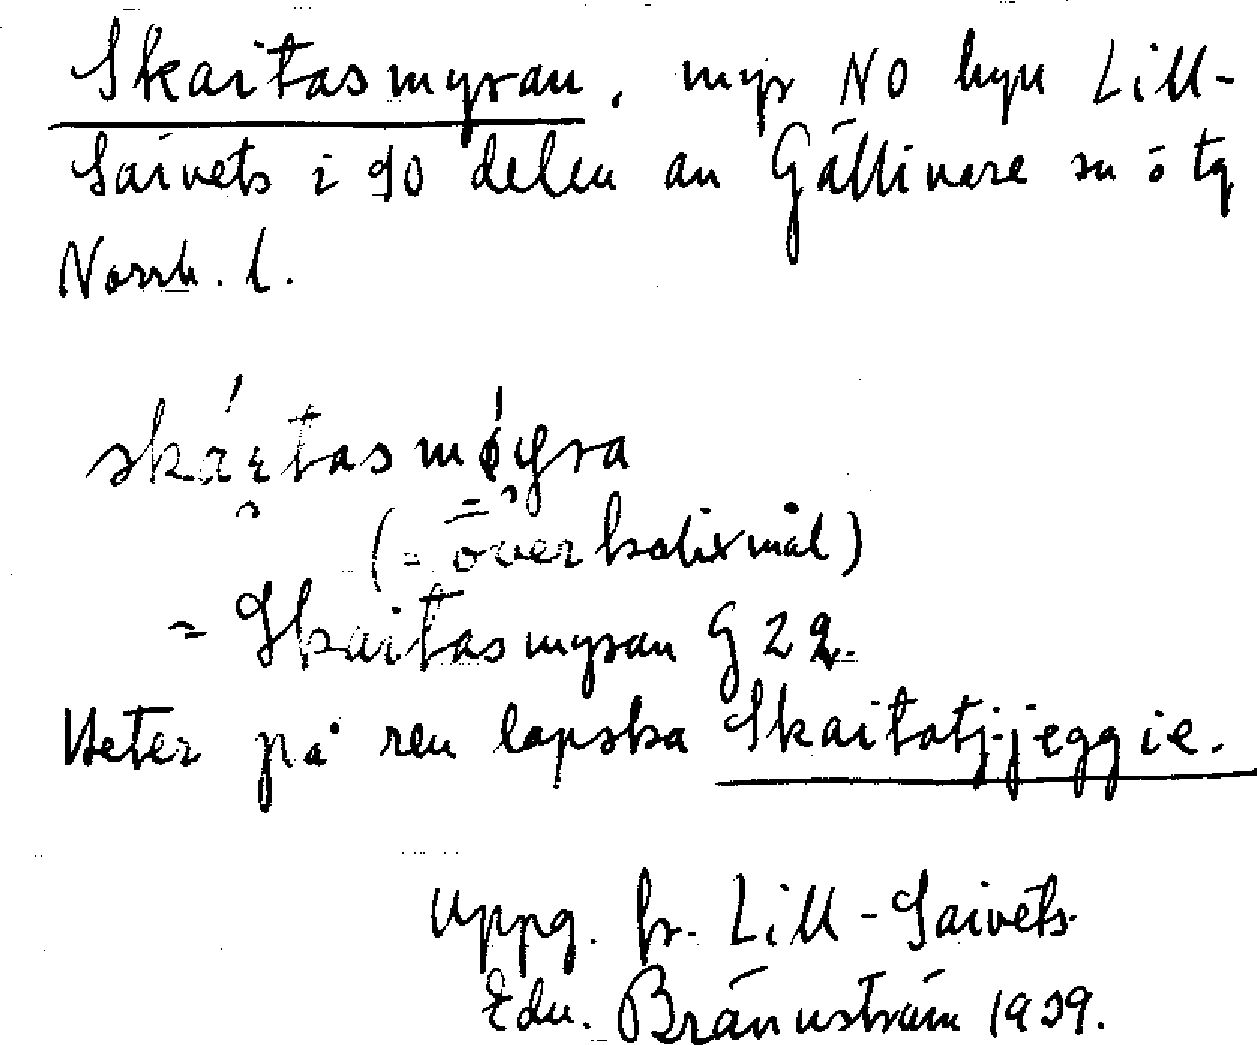 Skaitasmyran, myr NO byn Lill-
Saivets i SO delen av Gällivare sn o tg
Norrb. l.
(= överkalixmål)
= Skaitasmyran G 22.
Heter på ren lapska Skaitatj-jeggie.
Uppg. fr. Lill-Saivets
Edv. Brännström 1939.